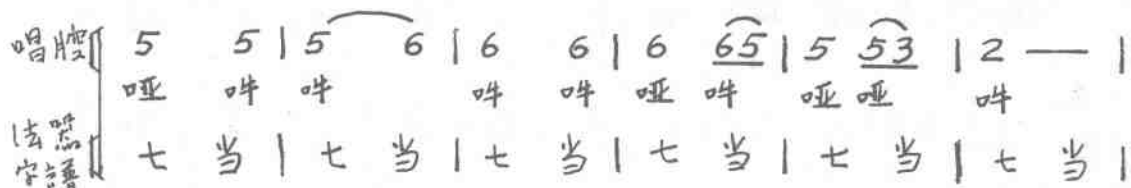 唱腔 5 5 | 5 6 | 6 6 | 6 65 | 5 53 | 2 — |
哑 吽 吽 吽 吽 哑 吽 哑 哑 吽
法器字譜 七 当 | 七 当 | 七 当 | 七 当 | 七 当 | 七 当 |